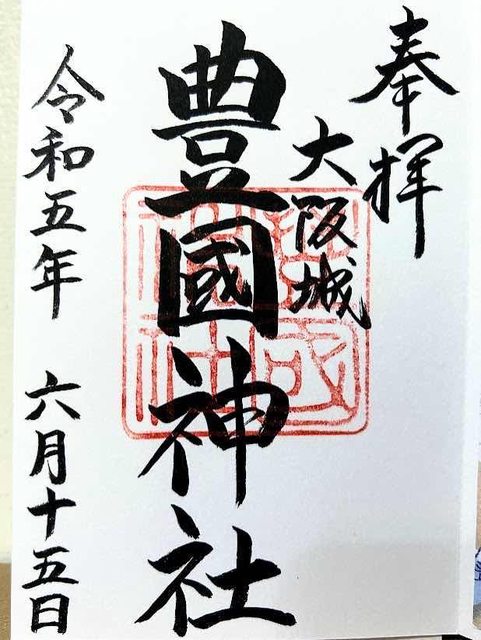 奉拝
大阪城
豊國神社
令和五年 六月十五日